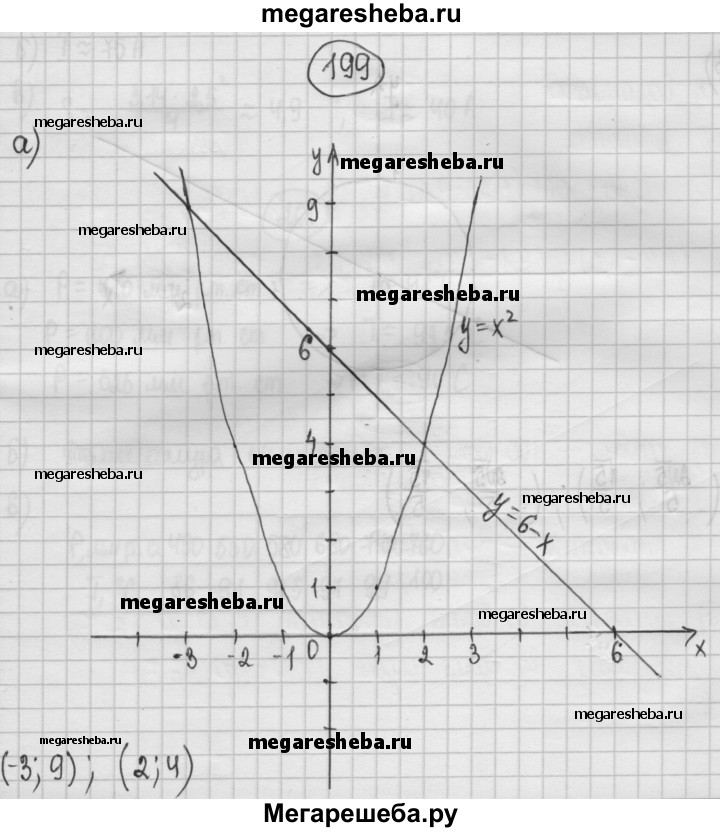 megaresheba.ru
199
megaresheba.ru
а)
y
megaresheba.ru
9
megaresheba.ru
megaresheba.ru
y=x²
megaresheba.ru
6
4
megaresheba.ru
megaresheba.ru
megaresheba.ru
y=6-x
1
megaresheba.ru
megaresheba.ru
-3 -2 -1 0 1 2 3 6 x
megaresheba.ru
megaresheba.ru
megaresheba.ru
(-3; 9); (2; 4)
Мегарешеба.ру